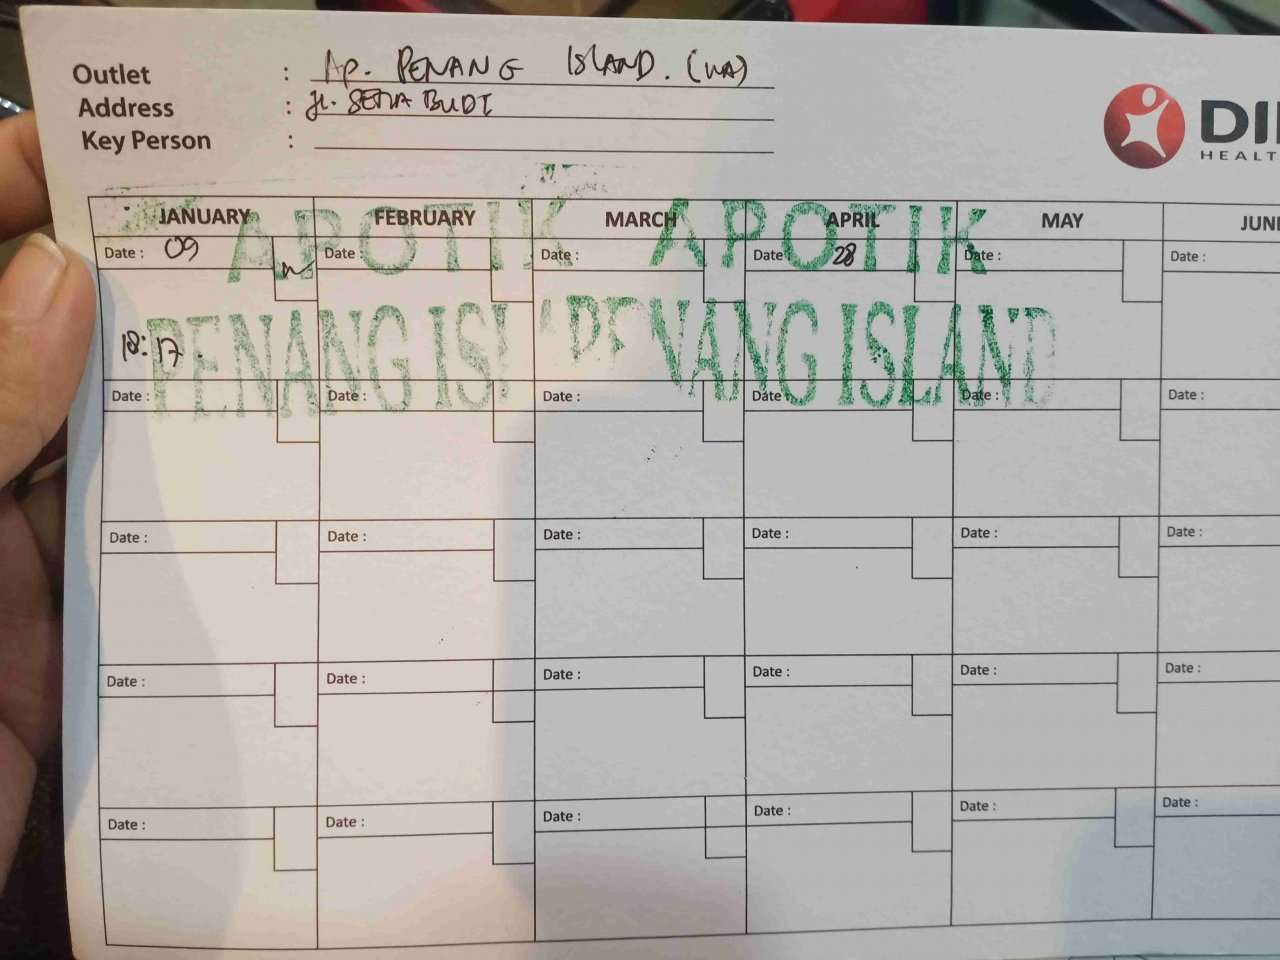 Outlet : Ap. PENANG ISLAND. (WA)
Address : Jl. SETIA BUDI
Key Person :
DI
HEALT
JANUARY FEBRUARY MARCH APRIL MAY JUN
APOTIK APOTIK
Date : 09 Date : Date : Date : 28 Date : Date :
PENANG ISL PENANG ISLAND
18:17
Date : Date : Date : Date : Date : Date :
Date : Date : Date : Date : Date : Date :
Date : Date : Date : Date : Date : Date :
Date : Date : Date : Date : Date : Date :